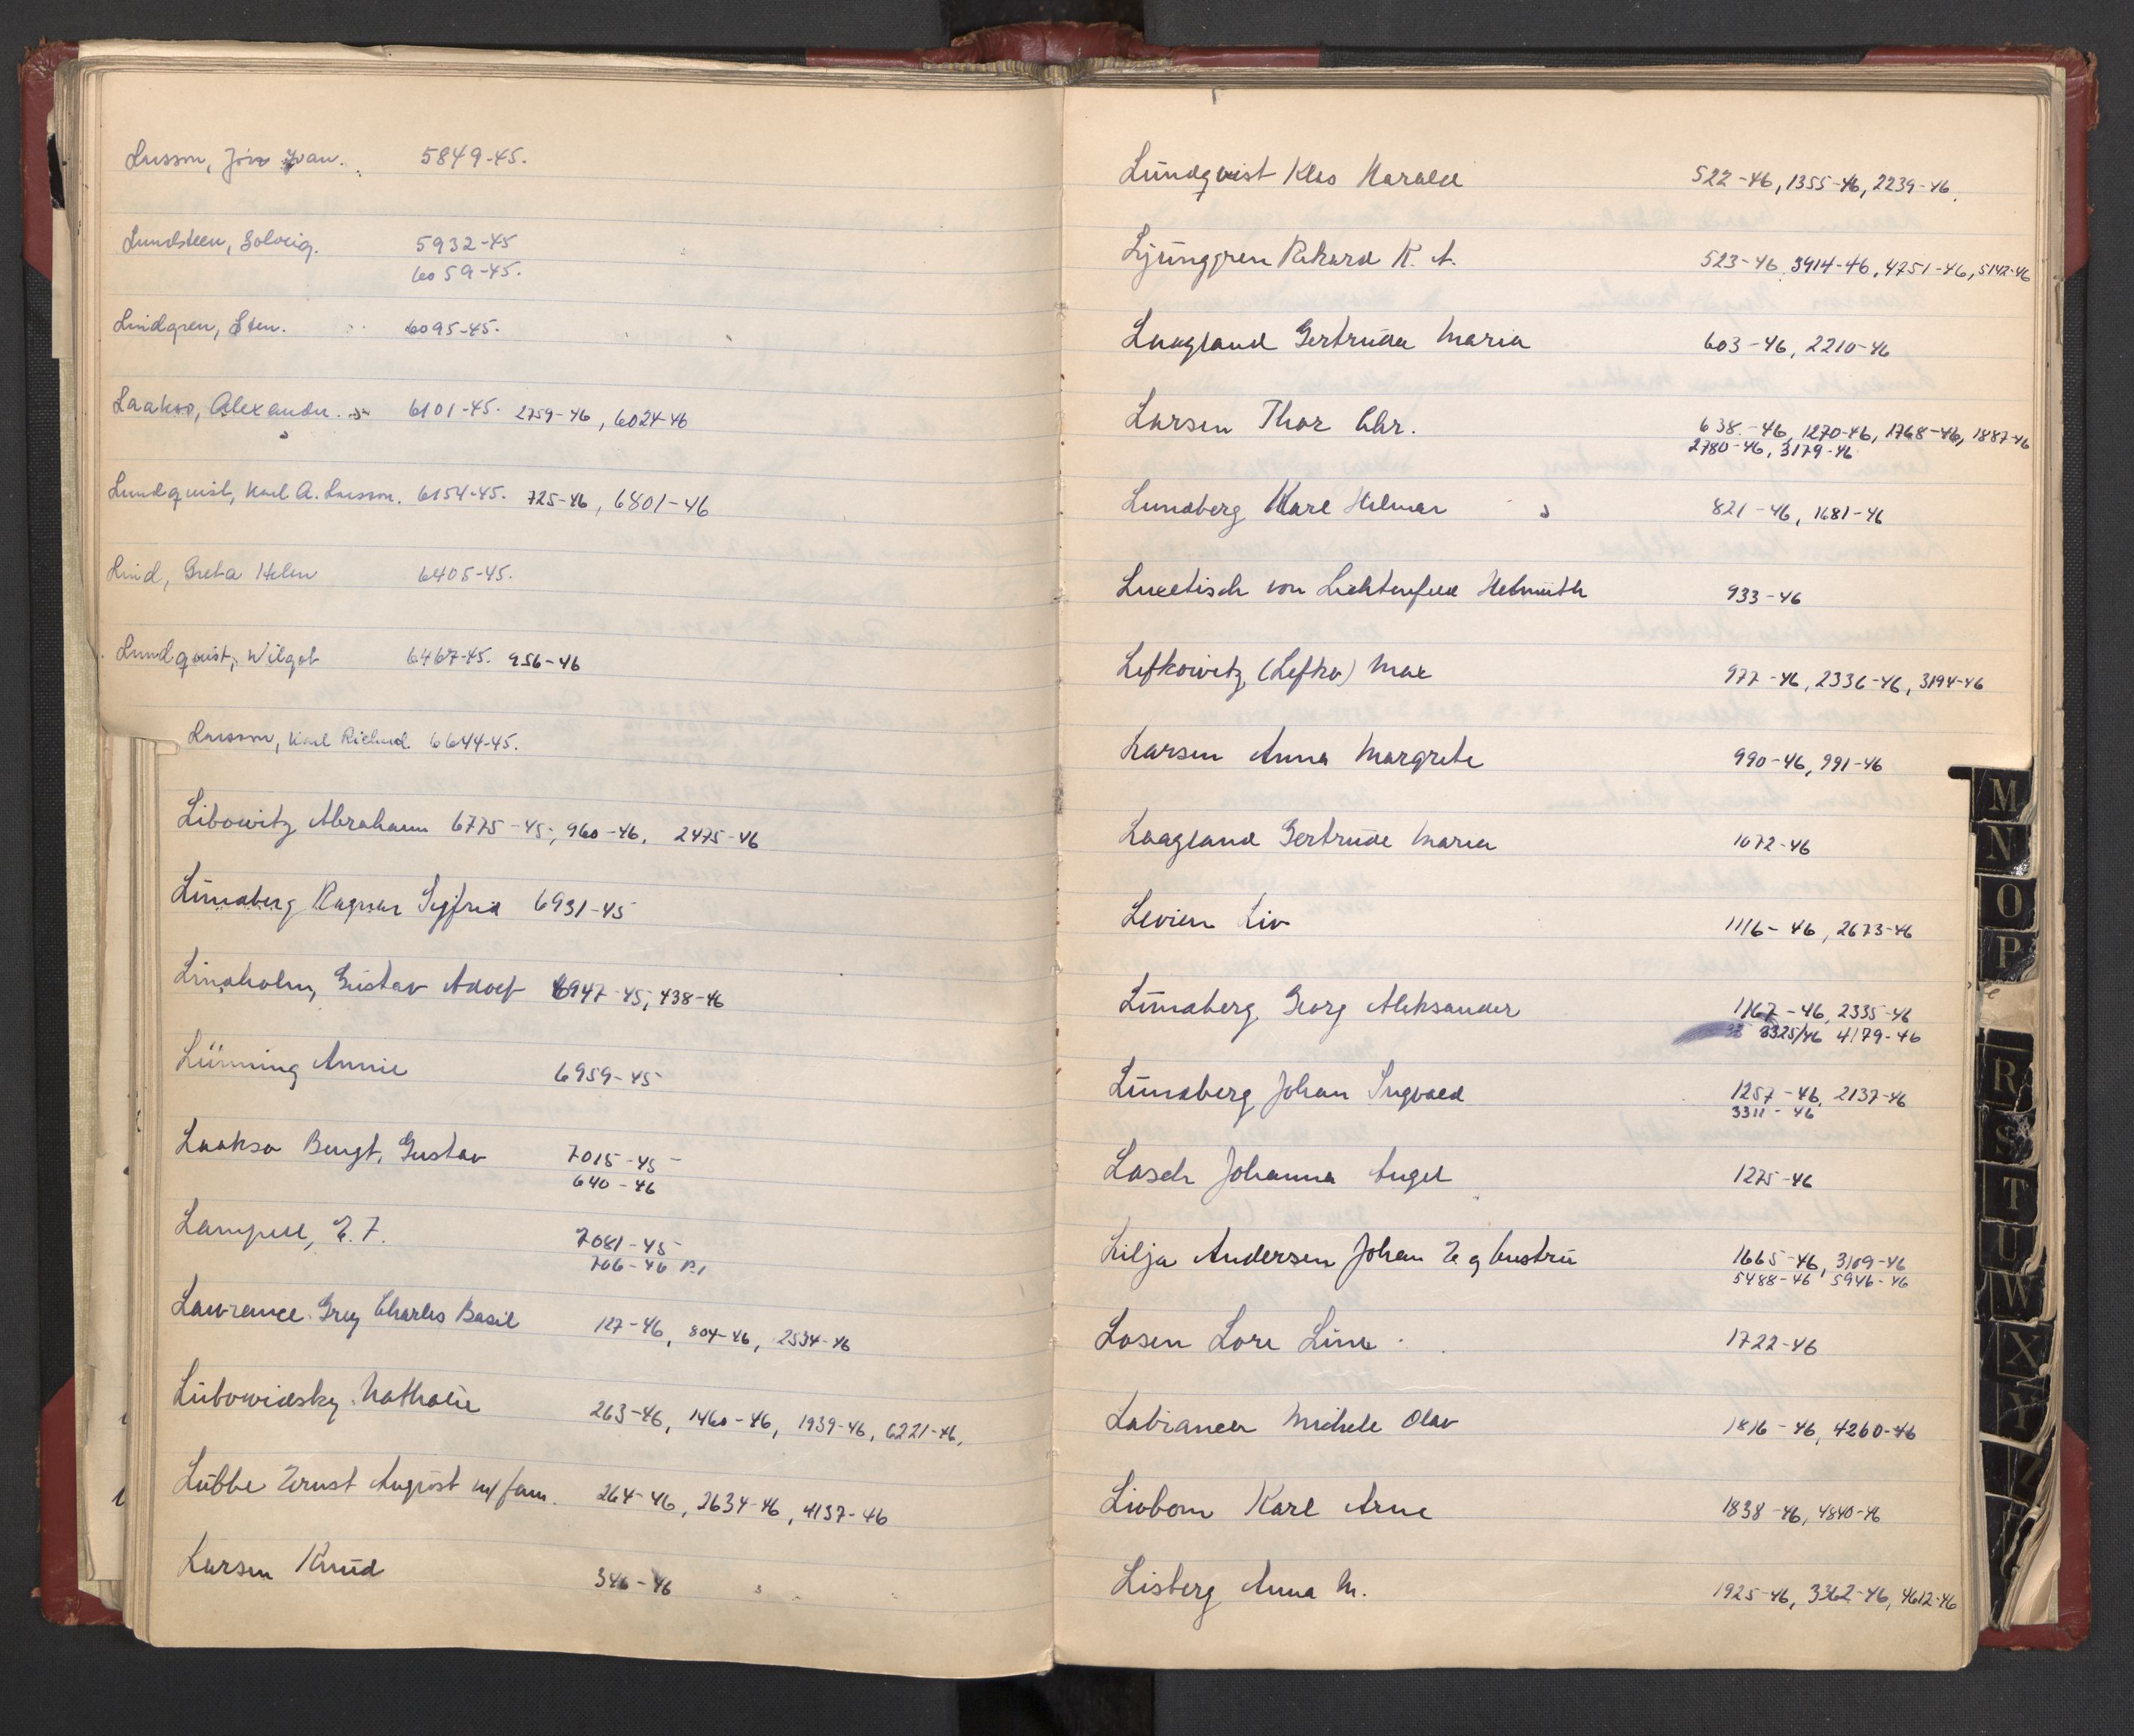 Larsson, Jön Ivan. 5849-45.
Lundsteen, Solveig. 5932-45
6059-45.
Lindgren, Sten. 6095-45.
Laakso, Alexander. 6101-45. 2759-46, 6024-46
Lundquist, Karl A. Larsson. 6154-45. 725-46, 6801-46
Lind, Greta Helen 6405-45.
Lundquist, Wilgot 6467-45. 956-46
Larsson, Karl Richard 6644-45.
Libowitz Abraham 6775-45, 960-46, 2475-46
Lundberg Ragnar Sigfrid 6931-45
Lindholm, Gustav Adolf 6947-45, 438-46
Lünning Annie 6959-45
Laakso Bengt, Gustav 7015-45
640-46
Lampell, E. F. 7081-45
706-46 P.1
Lawrance Grey Charles Basil 127-46, 804-46, 2534-46
Lubowidsky Nathalie 263-46, 1460-46, 1939-46, 6221-46,
Lübbe Ernst August m/fam. 264-46, 2634-46, 4137-46
Larsen Knud 346-46
Lundqvist Klas Harald 522-46, 1355-46, 2239-46,
Ljunggren Rikard K. A. 523-46, 3914-46, 4751-46, 5142-46
Laagland Gertruda Maria 603-46, 2210-46
Larsen Thor Chr. 638-46, 1270-46, 1768-46, 1887-46
2780-46, 3179-46
Lundberg Karl Hilmar 821-46, 1681-46
von Lichtenfeld Helmuth 933-46
Lefkowitz (Lefko) Max 977-46, 2336-46, 3194-46
Larsen Anna Margrete 990-46, 991-46
Laagland Gertrude Maria 1072-46
Levien Liv 1116-46, 2673-46
Lundberg Georg Aleksander 1167-46, 2335-46
3325/46 4179-46
Lundberg Johan Ingvald 1257-46, 2137-46
3311-46
Lasch Johanna Engel 1275-46
Lilja Andersen Johan E og hustru 1665-46, 3109-46
5488-46 5946-46
Losen Lore Line 1722-46
Labianca Michele Olav 1816-46, 4260-46
Livbom Karl Arne 1838-46, 4840-46
Lisberg Anna M. 1925-46, 3362-46, 4612-46
M
N
O
P
R
S
T
U
W
X
Y
Z